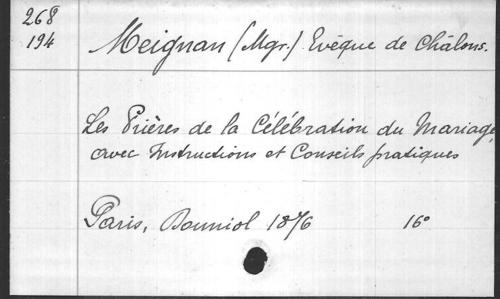 268
194
Meignan (Mgr.) Evêque de Châlons.
Les Prières de la Célébration du Mariage,
avec Instructions et Conseils pratiques
Paris, Douniol 1876 16°